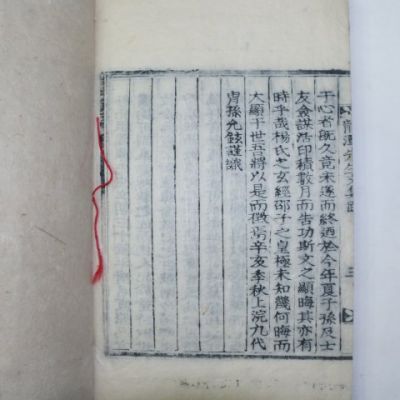 龍潭先生文集
于心者旣久竟未遂而終迺於今年夏子孫及士
友僉謀活印積數月而告功斯文之顯晦其亦有
時乎哉楊氏之玄經邵子之皇極未知幾何晦而
大顯于世吾將以是而徵焉辛亥季秋上浣九代
胄孫允鉉謹識